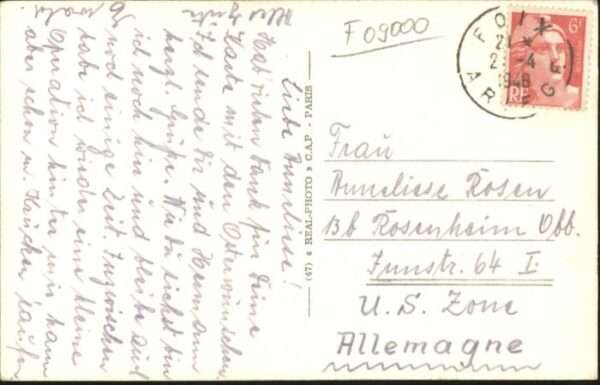 Liebe Anneliese!
Hab vielen Dank für Deine
Karte mit den Osterwünschen.
Ich sende Dir und Hermann
herzl. Grüße. Wie Du siehst bin
ich noch hier und bleibe auch
noch einige Zeit. Inzwischen
habe ich wieder eine kleine
Operation hinter mir kann
aber schon m. Krücken laufen
Alles Gute
(47) « REAL-PHOTO » C.A.P. - PARIS
F 09000
FOIX
21
2 - 4
1948
ARIEGE
6F
RF
Frau
Anneliese Rosen
13b Rosenheim Obb.
Innstr. 64 I
U.S. Zone
Allemagne